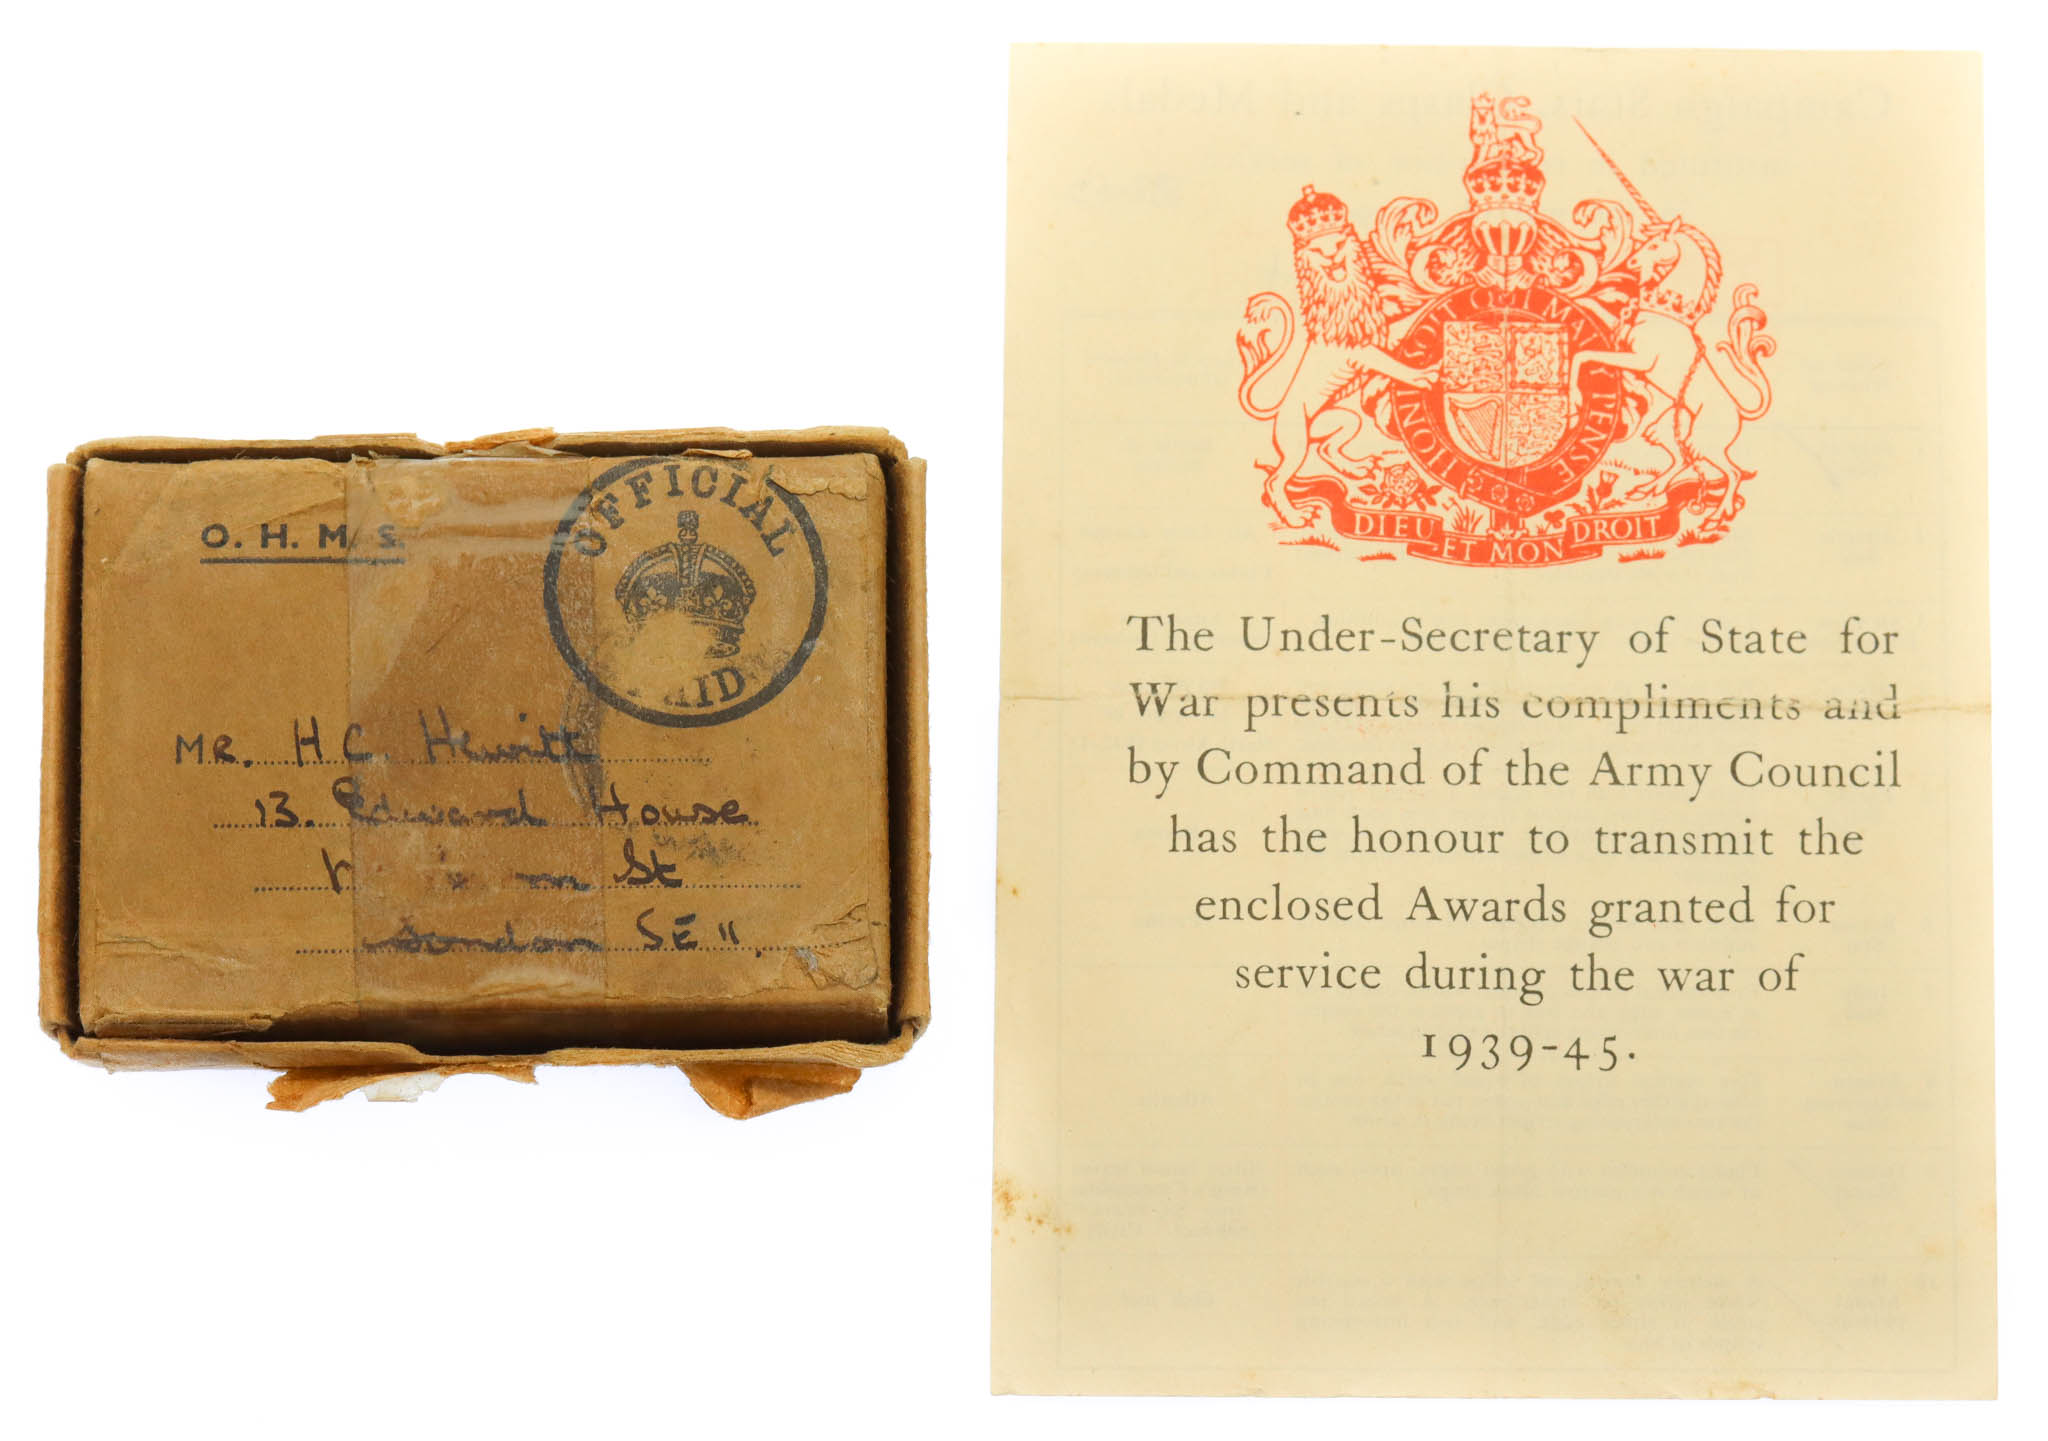 O. H. M. S.
OFFICIAL
MR. H C. Hewitt
13. Edward House
St
London SE 11.
HONI SOIT QUI MAL Y PENSE
DIEU ET MON DROIT
The Under-Secretary of State for
War presents his compliments and
by Command of the Army Council
has the honour to transmit the
enclosed Awards granted for
service during the war of
1939-45.